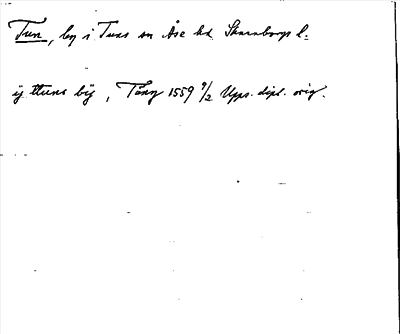 Tun, by i Tuns sn Åse hd. Skaraborgs l.
ij ttuns bÿ, Tång 1559 9/2 Upps. dipl. orig.